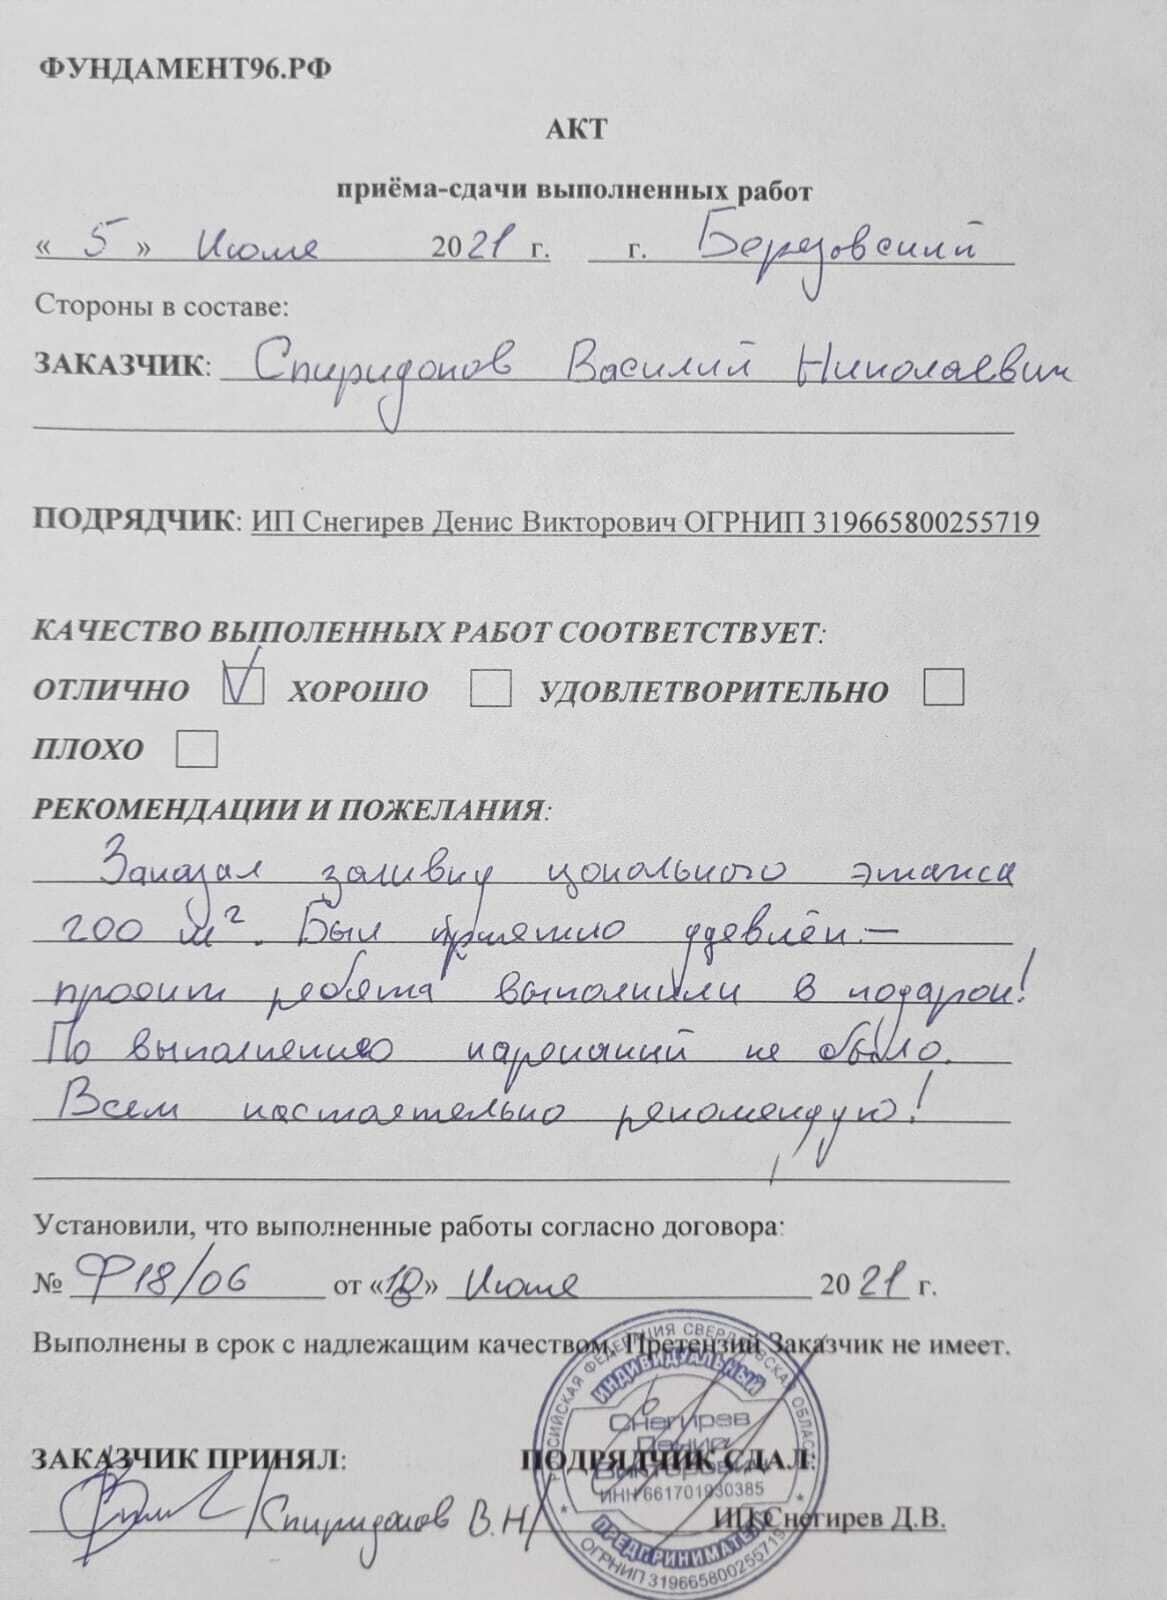 ФУНДАМЕНТ96.РФ
АКТ
приёма-сдачи выполненных работ
« 5 » Июля 2021 г. г. Березовский
Стороны в составе:
ЗАКАЗЧИК: Спиридонов Василий Николаевич
ПОДРЯДЧИК: ИП Снегирев Денис Викторович ОГРНИП 319665800255719
КАЧЕСТВО ВЫПОЛЕННЫХ РАБОТ СООТВЕТСТВУЕТ:
ОТЛИЧНО ХОРОШО УДОВЛЕТВОРИТЕЛЬНО
ПЛОХО
РЕКОМЕНДАЦИИ И ПОЖЕЛАНИЯ:
Заказал заливку цокольного этажа
200 м². Был приятно удевлён –
проэкт ребята выполнили в подарок!
По выполнению нареканий не было.
Всем настоятельно рекомендую!
Установили, что выполненные работы согласно договора:
№ Ф18/06 от «18» Июня 2021 г.
Выполнены в срок с надлежащим качеством. Претензий Заказчик не имеет.
ЗАКАЗЧИК ПРИНЯЛ: ПОДРЯДЧИК СДАЛ:
/Спиридонов В.Н/ ИП Снегирев Д.В.
РОССИЙСКАЯ ФЕДЕРАЦИЯ СВЕРДЛОВСКАЯ ОБЛАСТЬ
ИНДИВИДУАЛЬНЫЙ
Снегирев
Денис
Викторович
ИНН 661701930385
ПРЕДПРИНИМАТЕЛЬ
ОГРНИП 319665800255719